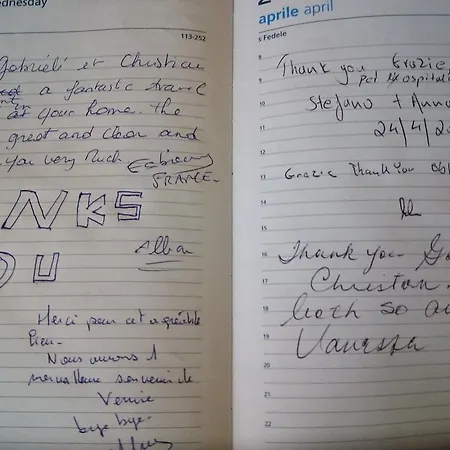 ednesday
113-252
Gabrieli et Christian
a fantastic travel
at your home. the
great and clean and
you very Much
FRANCE
NKS
OU
Alban
Merci pour cet agréable
lieu.
Nous aurons 1
merveilleux souvenir de
Venise
bye bye.
aprile april
s Fedele
8
Thank you Grazie
9
per l'hospital
10
Stefano + Anna
11
24/4/20
12
13
Grazie Thank You Obl
14
15
16
Thank you Ga
17
Christan.
18
both so a
19
Vanessa
20
21
22